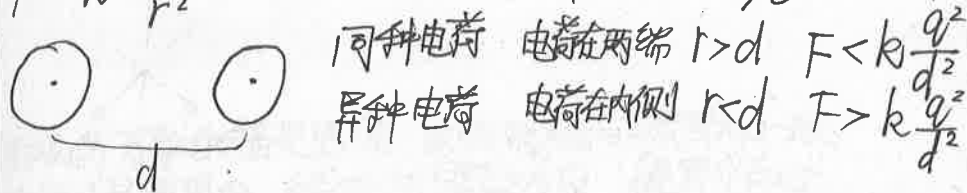 同种电荷 电荷在两端 r>d F<k q²/d²
异种电荷 电荷在内侧 r<d F>k q²/d²
d